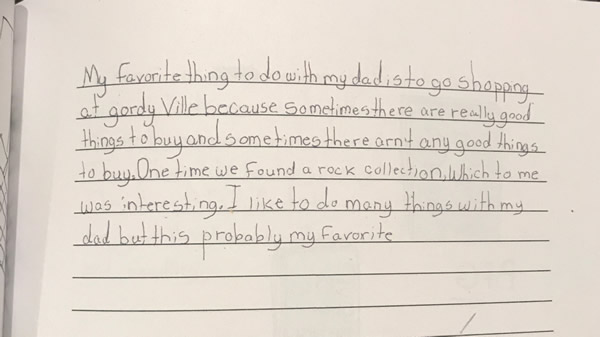 My favorite thing to do with my dad is to go shopping
at gordy Ville because sometimes there are really good
things to buy and sometimes there arn't any good things
to buy. One time we found a rock collection, Which to me
was interesting. I like to do many things with my
dad but this probably my favorite